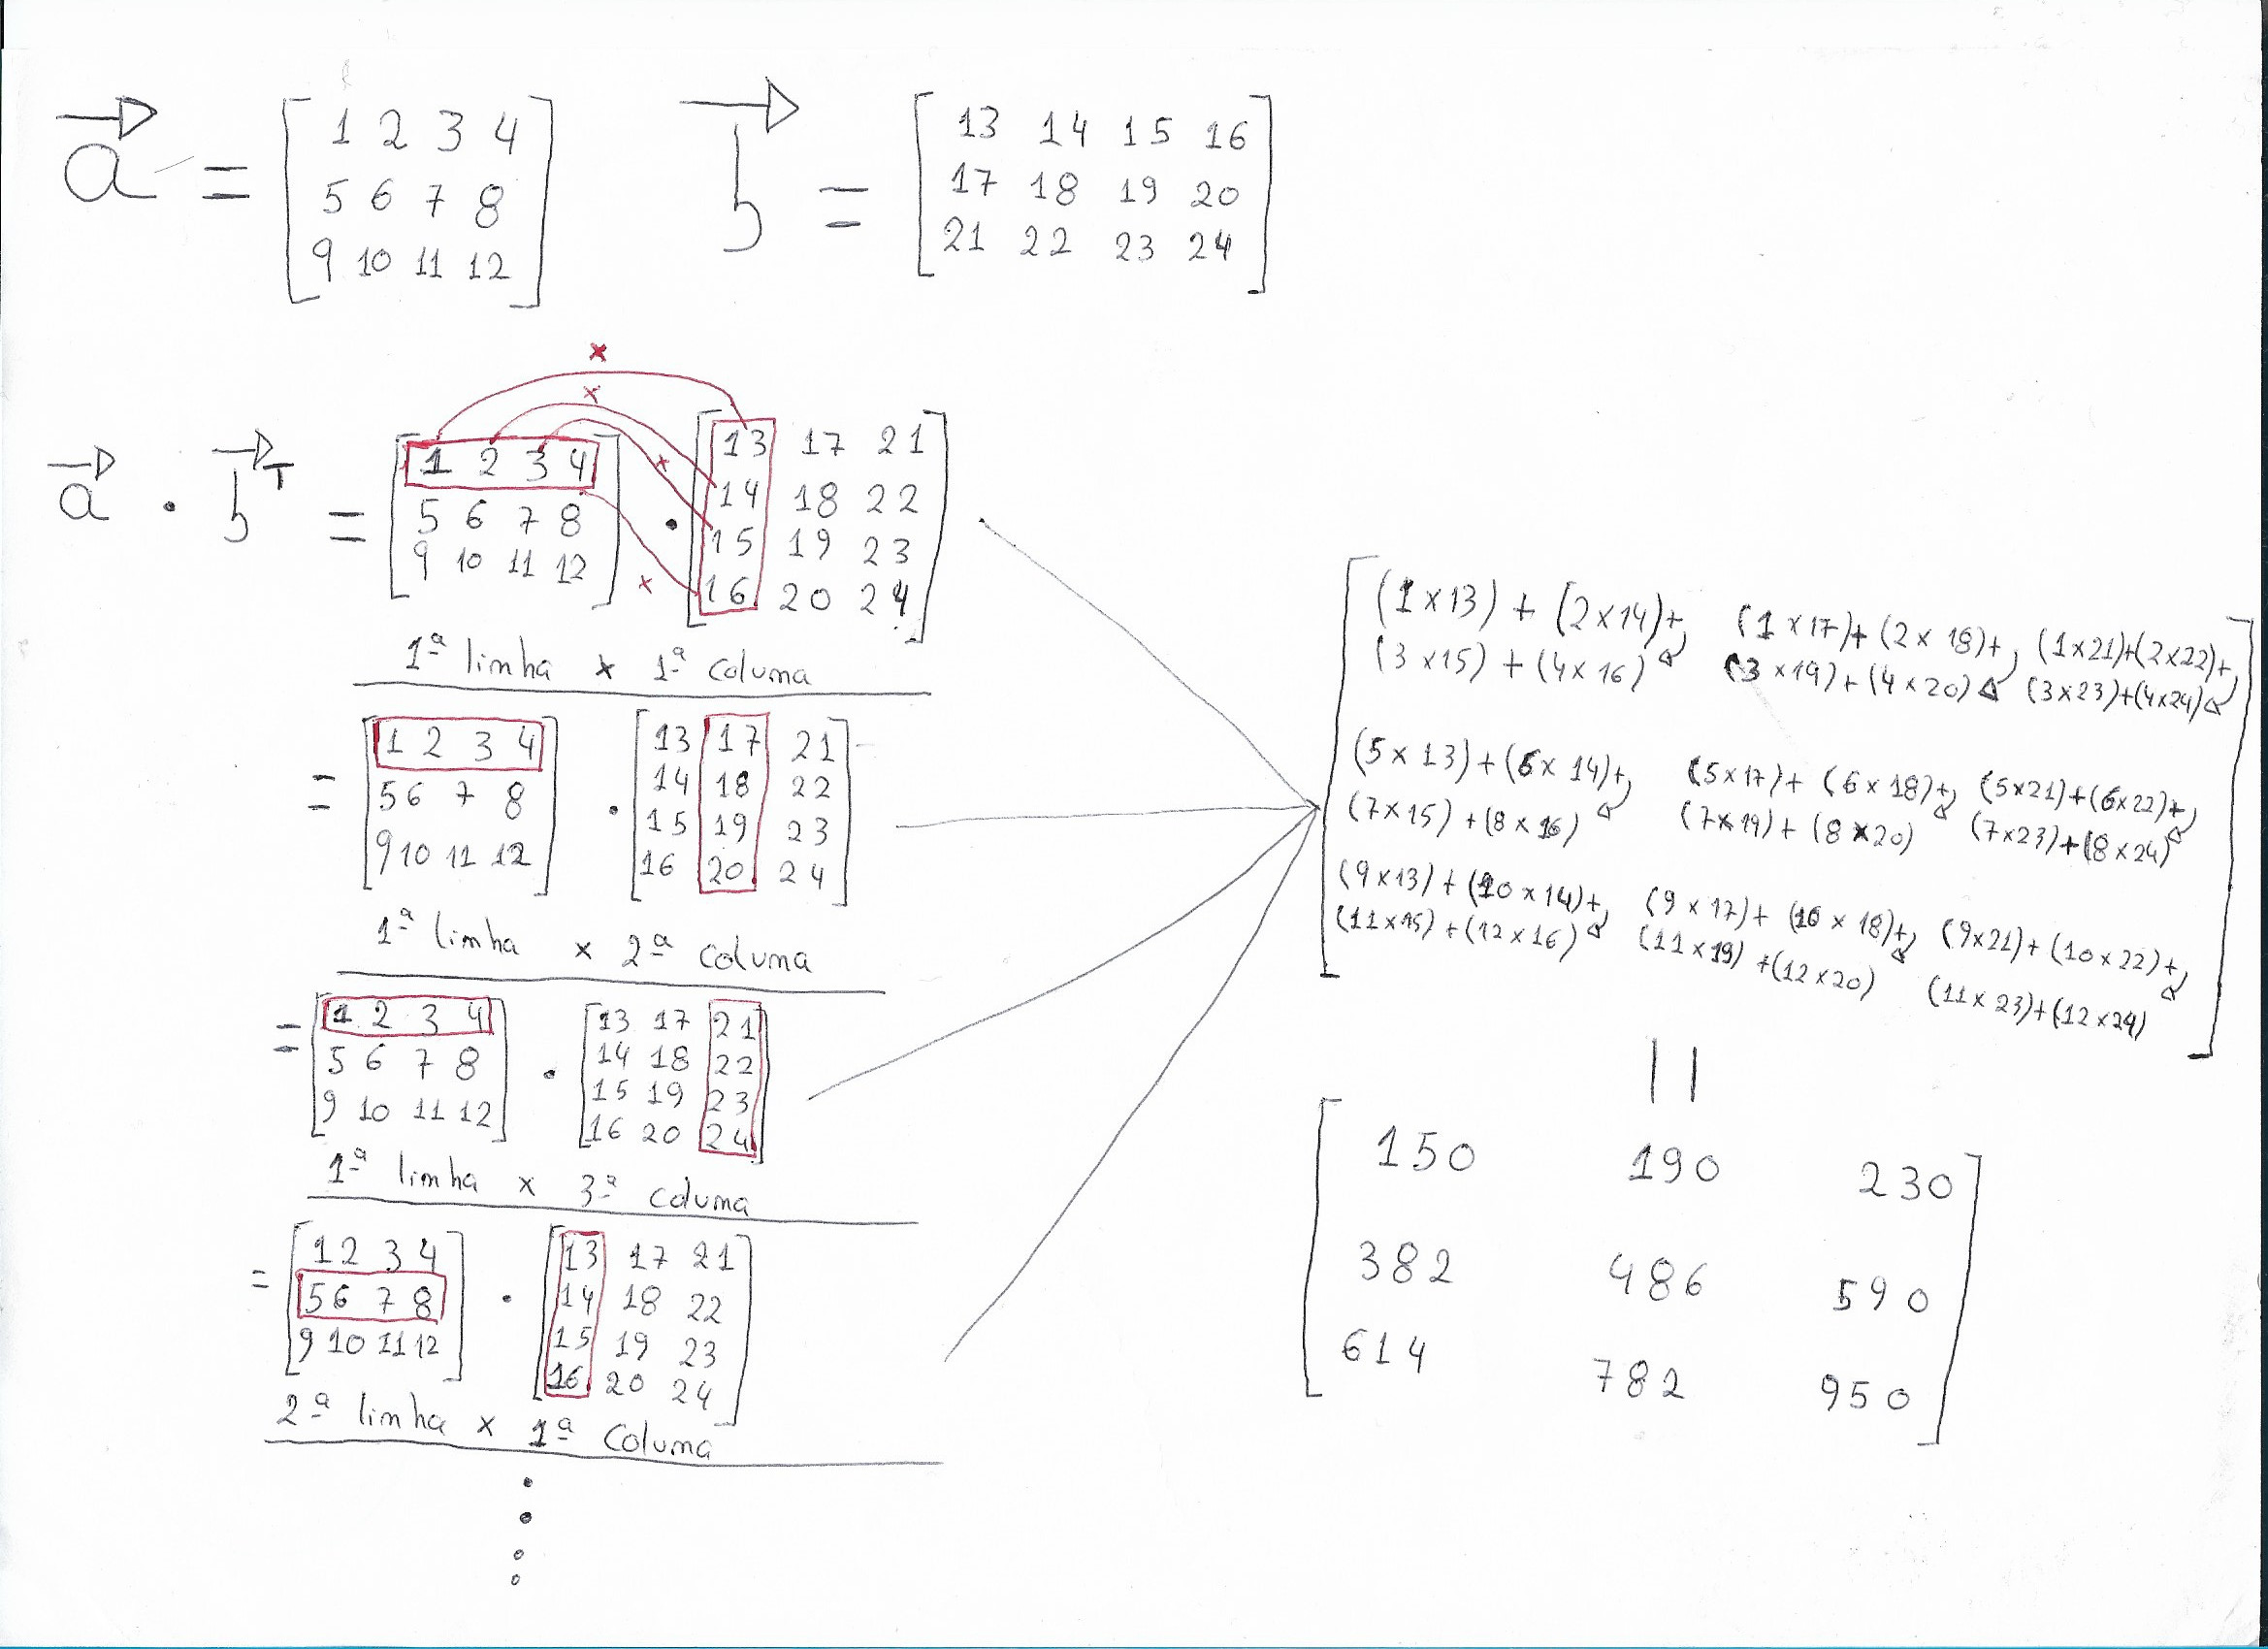 a = [ 1 2 3 4
5 6 7 8
9 10 11 12 ]
b = [ 13 14 15 16
17 18 19 20
21 22 23 24 ]
x
x
a . b T = [ 1 2 3 4
5 6 7 8
9 10 11 12 ]
x
x
. [ 13 17 21
14 18 22
15 19 23
16 20 24 ]
1ª linha x 1ª coluna
= [ 1 2 3 4
5 6 7 8
9 10 11 12 ]
. [ 13 17 21
14 18 22
15 19 23
16 20 24 ]
1ª linha x 2ª coluna
= [ 1 2 3 4
5 6 7 8
9 10 11 12 ]
. [ 13 17 21
14 18 22
15 19 23
16 20 24 ]
1ª linha x 3ª coluna
= [ 1 2 3 4
5 6 7 8
9 10 11 12 ]
. [ 13 17 21
14 18 22
15 19 23
16 20 24 ]
2ª linha x 1ª Coluna
[ (1x13) + (2x14)+ (1x17)+(2x18)+ (1x21)+(2x22)+
(3x15) + (4x16) (3x19)+(4x20) (3x23)+(4x24)
(5x13)+(6x14)+ (5x17)+(6x18)+ (5x21)+(6x22)+
(7x15)+(8x16) (7x19)+(8x20) (7x23)+(8x24)
(9x13)+(10x14)+ (9x17)+(10x18)+ (9x21)+(10x22)+
(11x15)+(12x16) (11x19)+(12x20) (11x23)+(12x24) ]
=
[ 150 190 230
382 486 590
614 782 950 ]